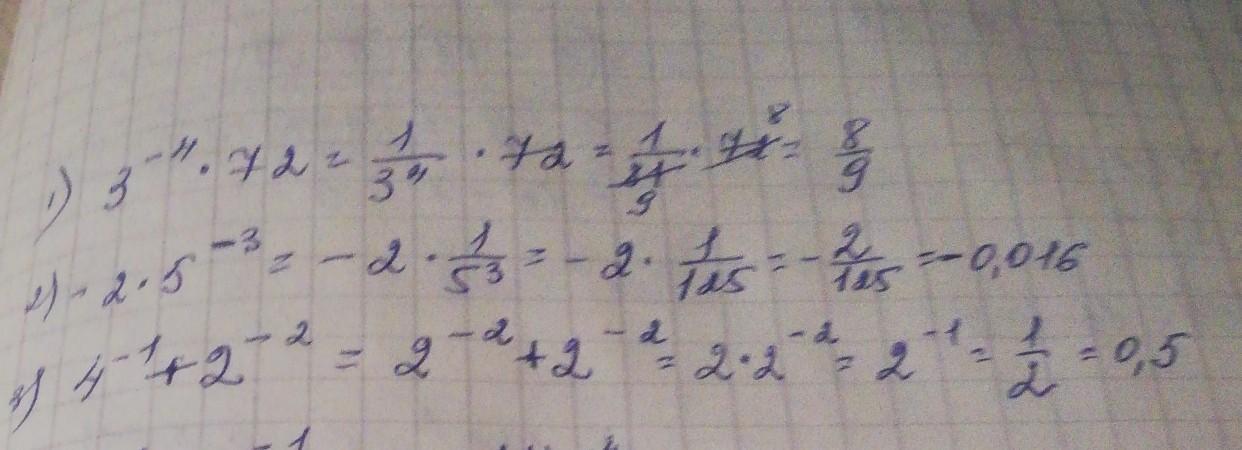 1) 3^{-4} · 72 = \frac{1}{3^4} · 72 = \frac{1}{\cancel{81}_9} · \cancel{72}^8 = \frac{8}{9}
2) -2 · 5^{-3} = -2 · \frac{1}{5^3} = -2 · \frac{1}{125} = -\frac{2}{125} = -0,016
3) 4^{-1} + 2^{-2} = 2^{-2} + 2^{-2} = 2 · 2^{-2} = 2^{-1} = \frac{1}{2} = 0,5